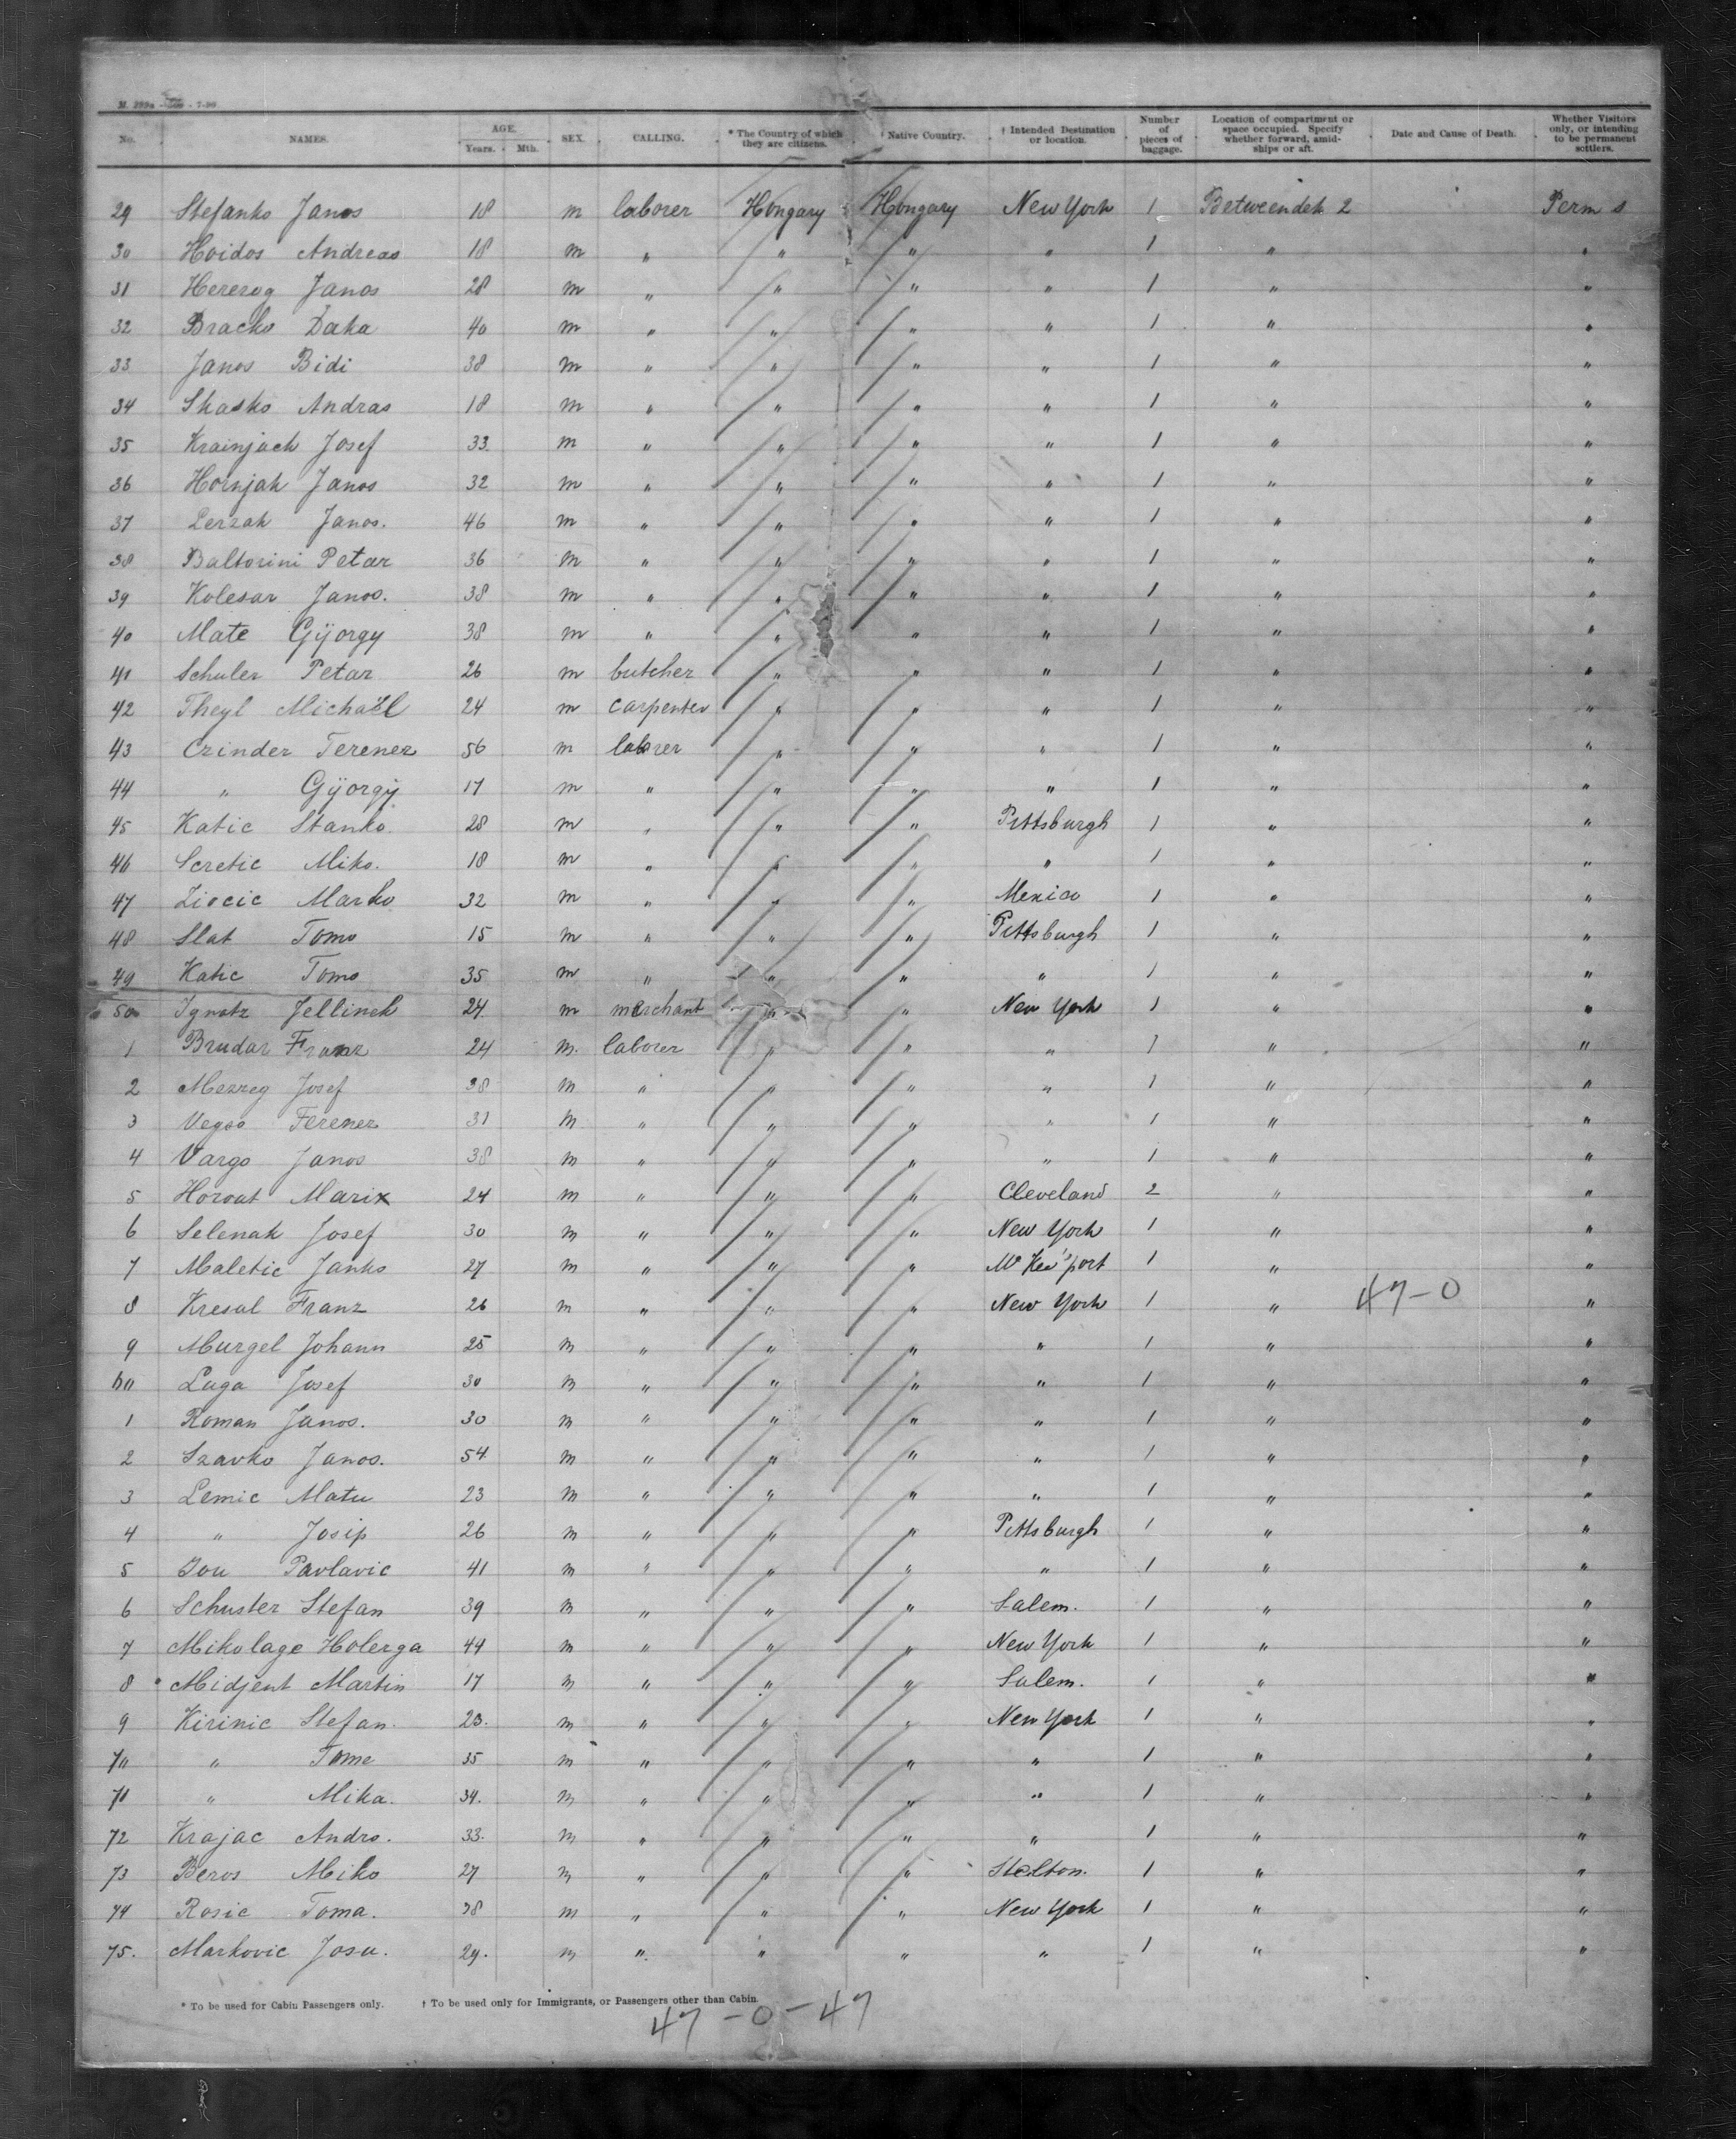 M. 299a - 500 - 7-99
No. NAMES. AGE. Years. Mth. SEX. CALLING. * The Country of which they are citizens. † Native Country. † Intended Destination or location. Number of pieces of baggage. Location of compartment or space occupied. Specify whether forward, amidships or aft. Date and Cause of Death. Whether Visitors only, or intending to be permanent settlers.
29 Stefanko Janos 18 m laborer Hongary Hongary New York 1 Betweendek 2 Perm s
30 Hoidos Andreas 18 m " " " " 1 " "
31 Hererog Janos 28 m " " " " 1 " "
32 Bracko Daka 40 m " " " " 1 " "
33 Janos Bidi 38 m " " " " 1 " "
34 Skasko Andras 18 m " " " " 1 " "
35 Krainjack Josef 33 m " " " " 1 " "
36 Hornjak Janos 32 m " " " " 1 " "
37 Lerzak Janos. 46 m " " " " 1 " "
38 Baltorini Petar 36 m " " " " 1 " "
39 Kolesar Janos. 38 m " " " " 1 " "
40 Mate Gÿorgy 38 m " " " " 1 " "
41 Schuler Petar 26 m butcher " " " 1 " "
42 Theyl Michaël 24 m carpenter " " " 1 " "
43 Czinder Ferencz 56 m laborer " " " 1 " "
44 " Gÿorgÿ 17 m " " " " 1 " "
45 Katic Stanko. 28 m " " " Pittsburgh 1 " "
46 Scretic Miko. 18 m " " " " 1 " "
47 Ziocic Marko 32 m " " " Mexico 1 " "
48 Slat Tomo 15 m " " " Pittsburgh 1 " "
49 Katic Tomo 35 m " " " " 1 " "
50 Ignatz Jellinek 24 m merchant " " New York 1 " "
1 Brudar Franz 24 m. laborer " " " 1 " "
2 Mezzeg Josef 38 m " " " " 1 " "
3 Vegso Ferencz 31 m " " " " 1 " "
4 Vargo Janos 38 m " " " " 1 " "
5 Horvat Marix 24 m " " " Cleveland 2 " "
6 Selenak Josef 30 m " " " New York 1 " "
7 Maletic Janko 27 m " " " Mc Kee'sport 1 " "
8 Kresal Franz 26 m " " " New York 1 " 47-0 "
9 Murgel Johann 25 m " " " " 1 " "
60 Luga Josef 30 m " " " " 1 " "
1 Roman Janos. 30 m " " " " 1 " "
2 Szavko Janos. 54 m " " " " 1 " "
3 Lemic Matu 23 m " " " " 1 " "
4 " Josip 26 m " " " Pittsburgh 1 " "
5 Jou Pavlavic 41 m " " " " 1 " "
6 Schuster Stefan 39 m " " " Salem. 1 " "
7 Mikolage Holerga 44 m " " " New York 1 " "
8 Midjent Martin 17 m " " " Salem. 1 " "
9 Kirinic Stefan. 23. m " " " New York 1 " "
70 " Tome 35 m " " " " 1 " "
71 " Mika. 34. m " " " " 1 " "
72 Krajac Andro. 33. m " " " " 1 " "
73 Beros Miko 27 m " " " Stelton. 1 " "
74 Rosic Toma. 38 m " " " New York 1 " "
75. Markovic Josu. 29. m " " " " 1 " "
* To be used for Cabin Passengers only. † To be used only for Immigrants, or Passengers other than Cabin.
47 - 0 - 47